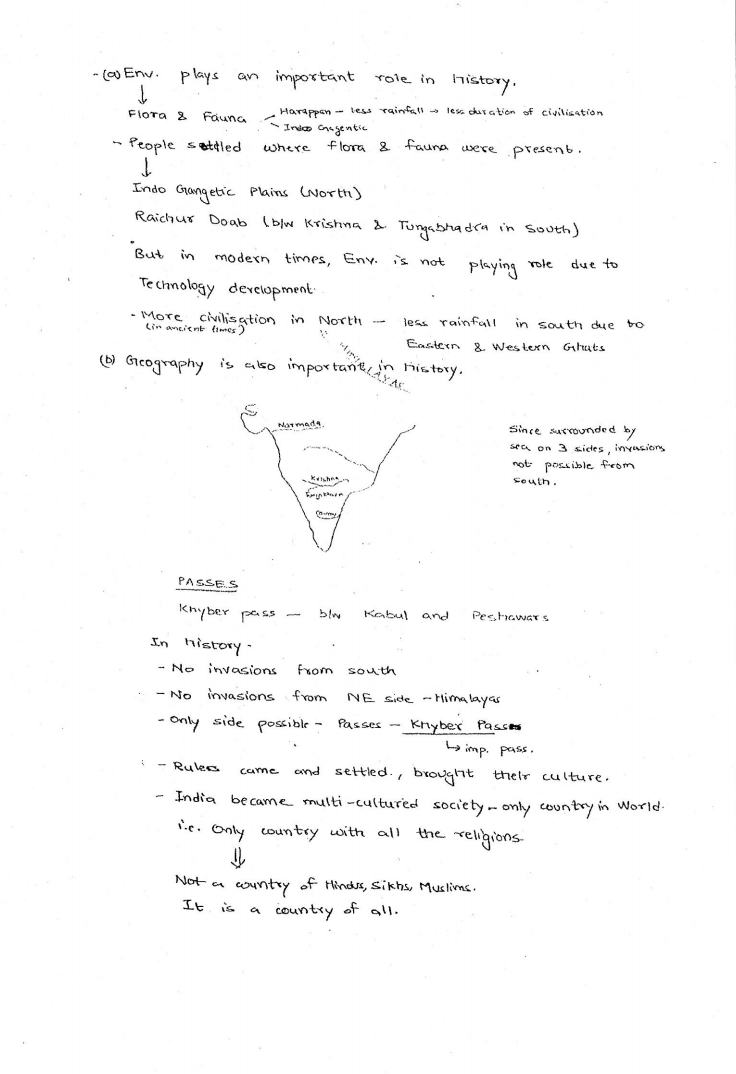 - (a) Env. plays an important role in History.
↓
Flora & Fauna - Harappan - less rainfall → less duration of civilisation
- Indo Gagentic
- People settled where flora & fauna were present.
↓
Indo Gangetic Plains (North)
Raichur Doab (b/w Krishna & Tungabhadra in South)
But in modern times, Env. is not playing role due to
Technology development.
- More civilisation in North - less rainfall in south due to
(in ancient times)
Eastern & Western Ghats
HIMALAYAS
(b) Geography is also important in history.
Narmada.
Since surrounded by
sea on 3 sides, invasions
not possible from
south.
Krishna
PASSES
Khyber pass - b/w Kabul and Peshawars
In History -
- No invasions from south
- No invasions from NE side - Himalayas
- Only side possible - Passes - Khyber Pass
↳ imp. pass.
- Rulers came and settled, brought their culture.
- India became multi-cultured society - only country in World.
i.e. Only country with all the religions.
⇓
Not a country of Hindus, Sikhs, Muslims.
It is a country of all.